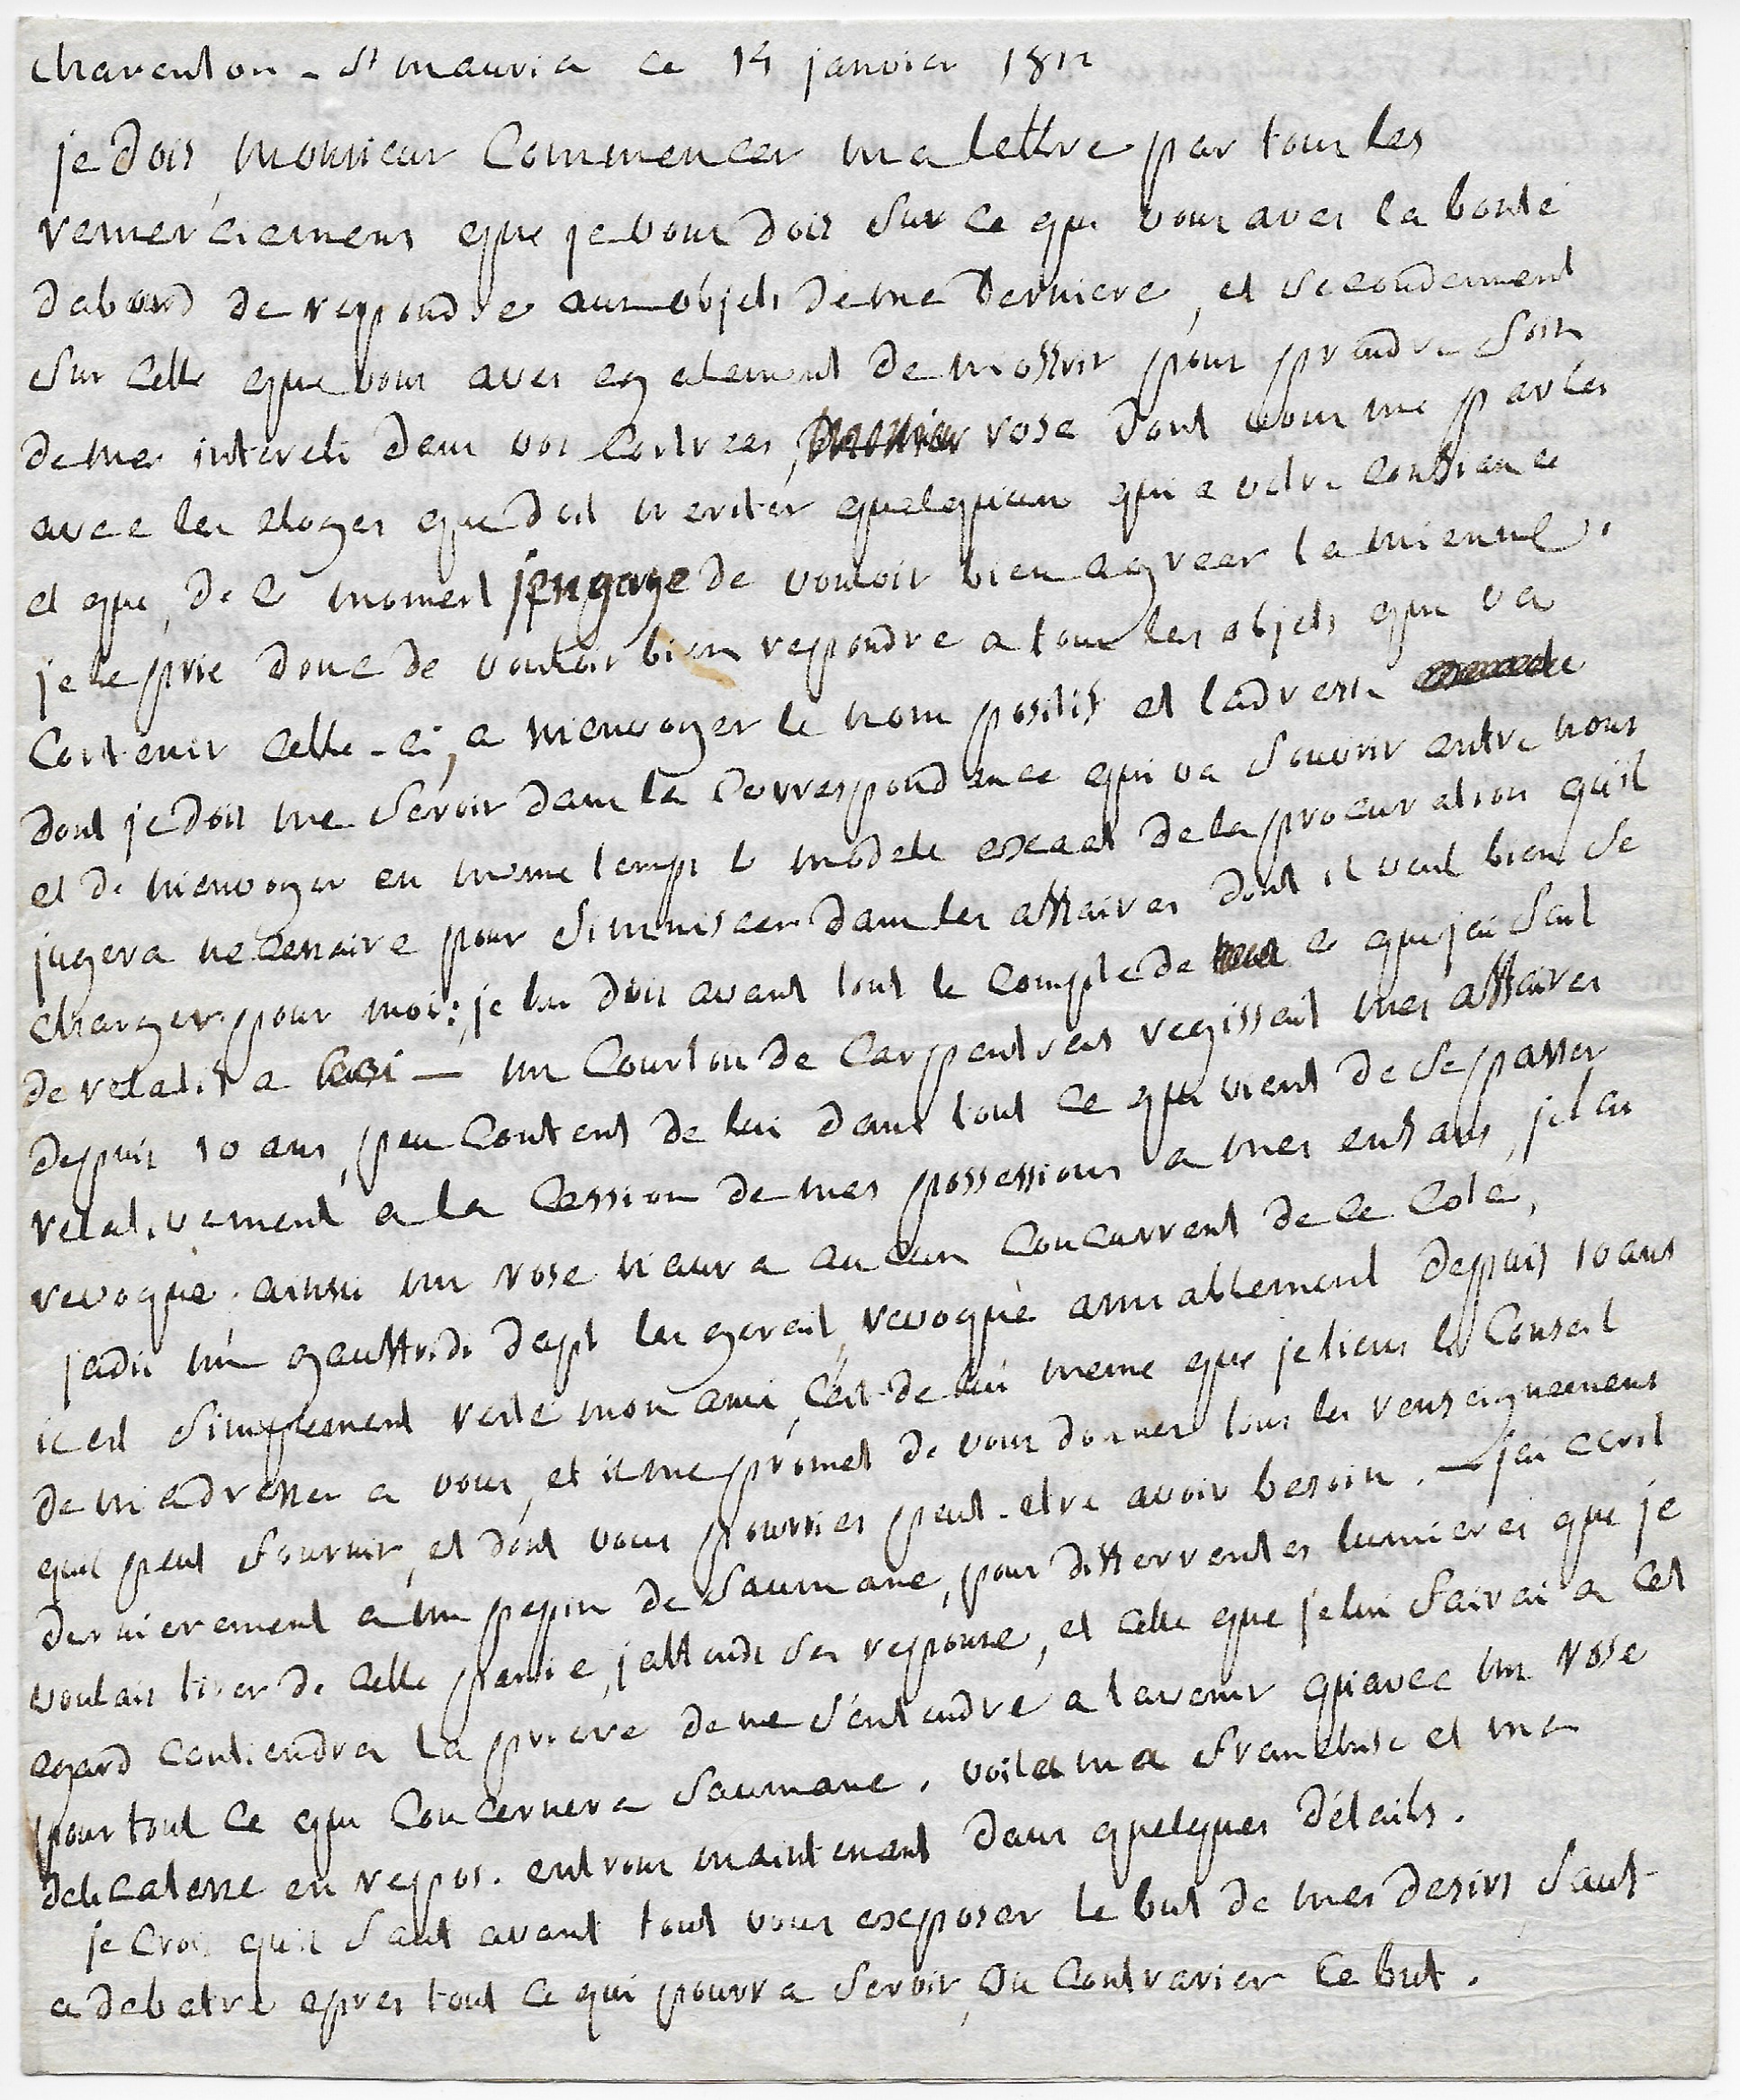 charenton - St maurice ce 14 janvier 1812
je dois monsieur commencer ma lettre par tous les
remerciemens que je vous dois sur ce que vous aves la bonté
dabord de repondre aux objets de ma derniere, et secondement
sur celle que vous aves egalement de m'offrir pour prendre soin
de mes interets dans vos contrees, rose dont vous me parles
avec les eloges que doit meriter quelqu'un qui a votre confiance
et que, de ce moment jengage de vouloir bien agreer la mienne.
je le prie donc de vouloir bien repondre a tous les objets que va
contenir celle-ci, a m'envoyer le nom positif et ladresse
dont je dois me servir dans la correspondence qui va souvrir entre nous
et de m'envoyer en meme temps le modele exact de la procuration qu'il
jugera necessaire pour simmiscer dans les affaires dont il veut bien se
charger pour moi: je lui dois avant tout le compte de ce que jai fait
de relatif a lui — mr Courtou de Carpentras regissait mes affaires
depuis 10 ans, peu content de lui dans tout ce qui vient de se passer
relativement a la cession de mes possessions a mes enfans, je lai
revoqué. ainsi mr rose n'aura aucun concurrent de ce coté,
jadis mr gauffridi dapt les gerait, revoqué amiablement depuis 10 ans
il est simplement resté mon ami, c'est de lui meme que je tiens le conseil
de m'adresser a vous, et il me promet de vous donner tous les renseignemens
quil peut fournir, et dont vous pourries peut-etre avoir besoin. — jai ecrit
dernierement a mr pepin de Saumane, pour differrentes lumieres que je
voulais tirer de cette partie, jattends sa reponse, et celle que je lui fairai a cet
egard contiendra la priere de ne s'entendre a lavenir qu'avec mr rose
pour tout ce qui concernera Saumane. voila ma franchise et ma
delicatesse en repos. entrons maintenant dans quelques détails.
je crois qu'il faut avant tout vous exposer le but de mes desirs sauf
a debatre apres tout ce qui pourra servir, ou contrarier ce but.